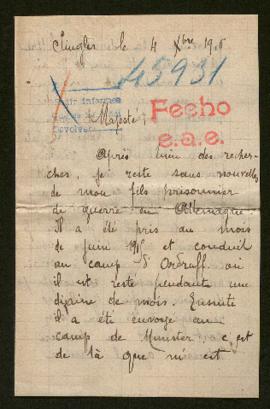 Pinglès le 4 Xbre 1916
45931
Majesté,
Fecho
e.a.e.
Après bien des recher-
ches, je reste sans nouvelles
de mon fils prisonnier
de guerre en Allemagne.
Il a été pris au mois
de juin 1915 et conduit
au camp d'Ordruff. où
il est resté pendante une
dizaine de mois. Ensuite
il a été envoyé au
camp de Munster, c'est
de là que m'est